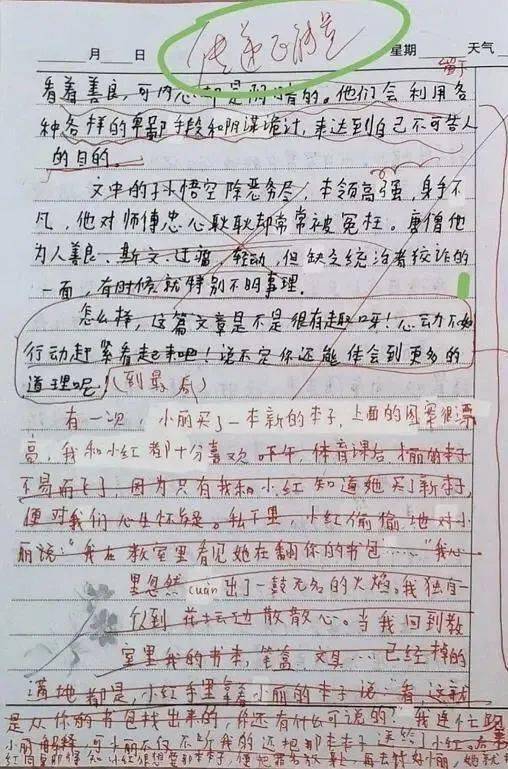 传递正能量
月 日 星期 天气
留于
看着善良,可内心却是阴暗的。他们会利用各
种各样的卑鄙手段和阴谋诡计,来达到自己不可告人
的目的。
文中的孙悟空除恶务尽,本领高强,身手不
凡,他对师傅忠心耿耿却常常被冤枉。唐僧他
为人善良、斯文、迂腐,轻动,但缺乏统治者狡诈的
一面,有时候就特别不明事理。
怎么样,这篇文章是不是很有趣呀!心动不如
行动赶紧看起来吧!说不定你还能体会到更多的
道理呢 (到最后)
有一次,小丽买了一本新的本子,上面的图案很漂
亮,我和小红都十分喜欢。下午,体育课后,小丽的本子
不易而飞了,因为只有我和小红知道她买了新本子,
便对我们心生怀疑。私下里,小红偷偷地对小
丽说:"我在教室里看见她在翻你的书包……"我心
里忽然cuàn出了一鼓无名的火焰。我独自一
人到花坛边散散心。当我回到教
室里我的书本,笔盒,文具……已经掉的
满地都是,小红手里拿着小丽的本子说:看,这就
是从你的书包找出来的,你还有什么可说的?我连忙跟
小丽解释,可小丽不仅不听我的还把那本本子送给了小红。后来